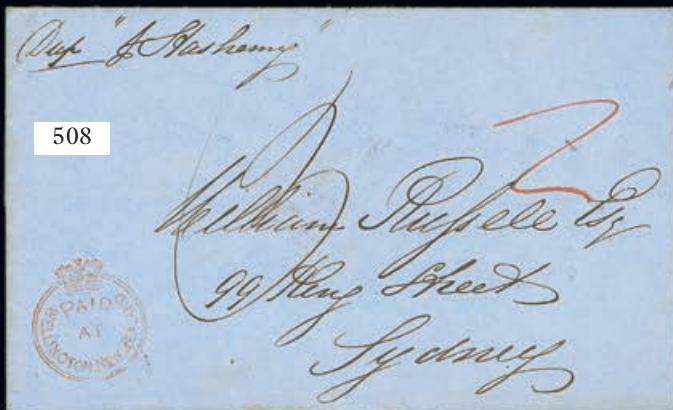 Dup "J Hashemy"
508
2
William Russell Esq
99 King Street
Sydney
PAID
AT
WELLINGTON NEW ZEALAND